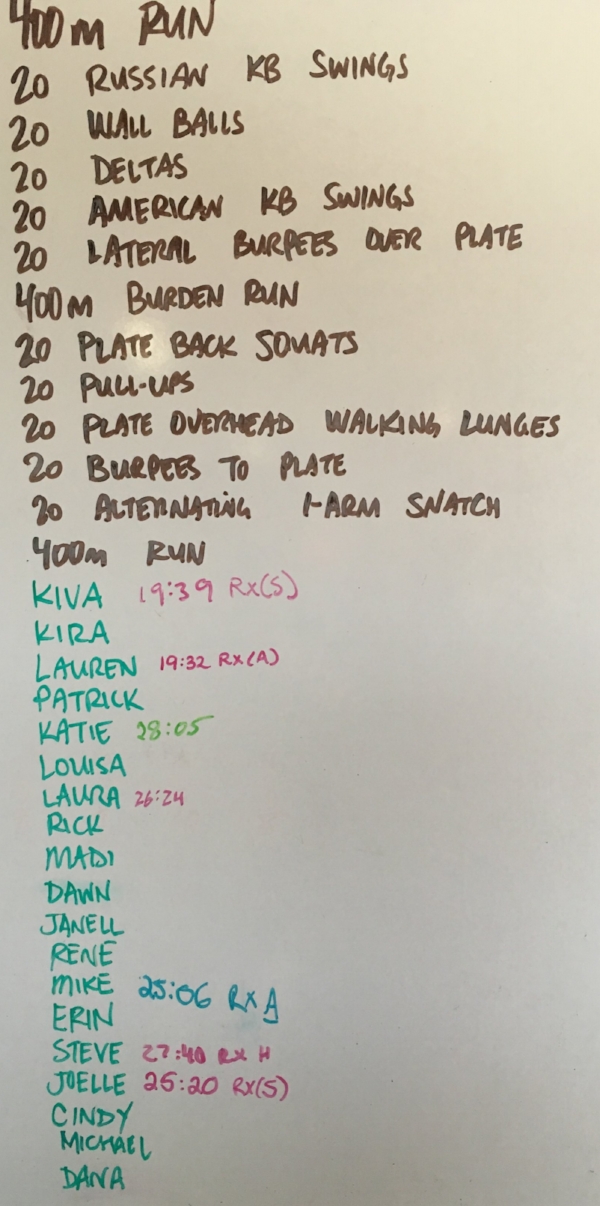 400m RUN
20 RUSSIAN KB SWINGS
20 WALL BALLS
20 DELTAS
20 AMERICAN KB SWINGS
20 LATERAL BURPEES OVER PLATE
400m BURDEN RUN
20 PLATE BACK SQUATS
20 PULL-UPS
20 PLATE OVERHEAD WALKING LUNGES
20 BURPEES TO PLATE
20 ALTERNATING 1-ARM SNATCH
400m RUN
KIVA 19:39 Rx(S)
KIRA
LAUREN 19:32 Rx(A)
PATRICK
KATIE 28:05
LOUISA
LAURA 26:24
RICK
MADI
DAWN
JANELL
RENE
MIKE 25:06 Rx A
ERIN
STEVE 27:40 Rx H
JOELLE 25:20 Rx(S)
CINDY
MICHAEL
DANA